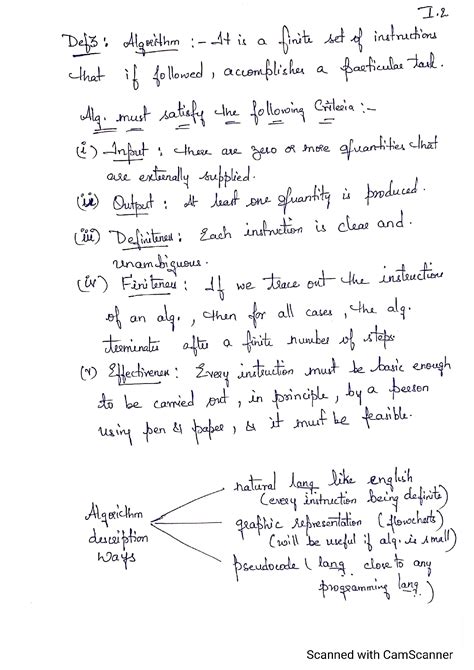 I.2
Def3: Algorithm :- It is a finite set of instructions
that if followed, accomplishes a particular task.
Alg. must satisfy the following Criteria :-
(i) Input : there are zero or more quantities that
are externally supplied.
(ii) Output : At least one quantity is produced.
(iii) Definiteness : Each instruction is clear and
unambiguous.
(iv) Finiteness : If we trace out the instructions
of an alg., then for all cases, the alg.
terminates after a finite number of steps
(v) Effectiveness : Every instruction must be basic enough
to be carried out, in principle, by a person
using pen & paper, & it must be feasible.
natural lang like english
(every instruction being definite)
Algorithm
description
ways
graphic representation (flowcharts)
(will be useful if alg. is small)
pseudocode (lang. close to any
programming lang.)
Scanned with CamScanner